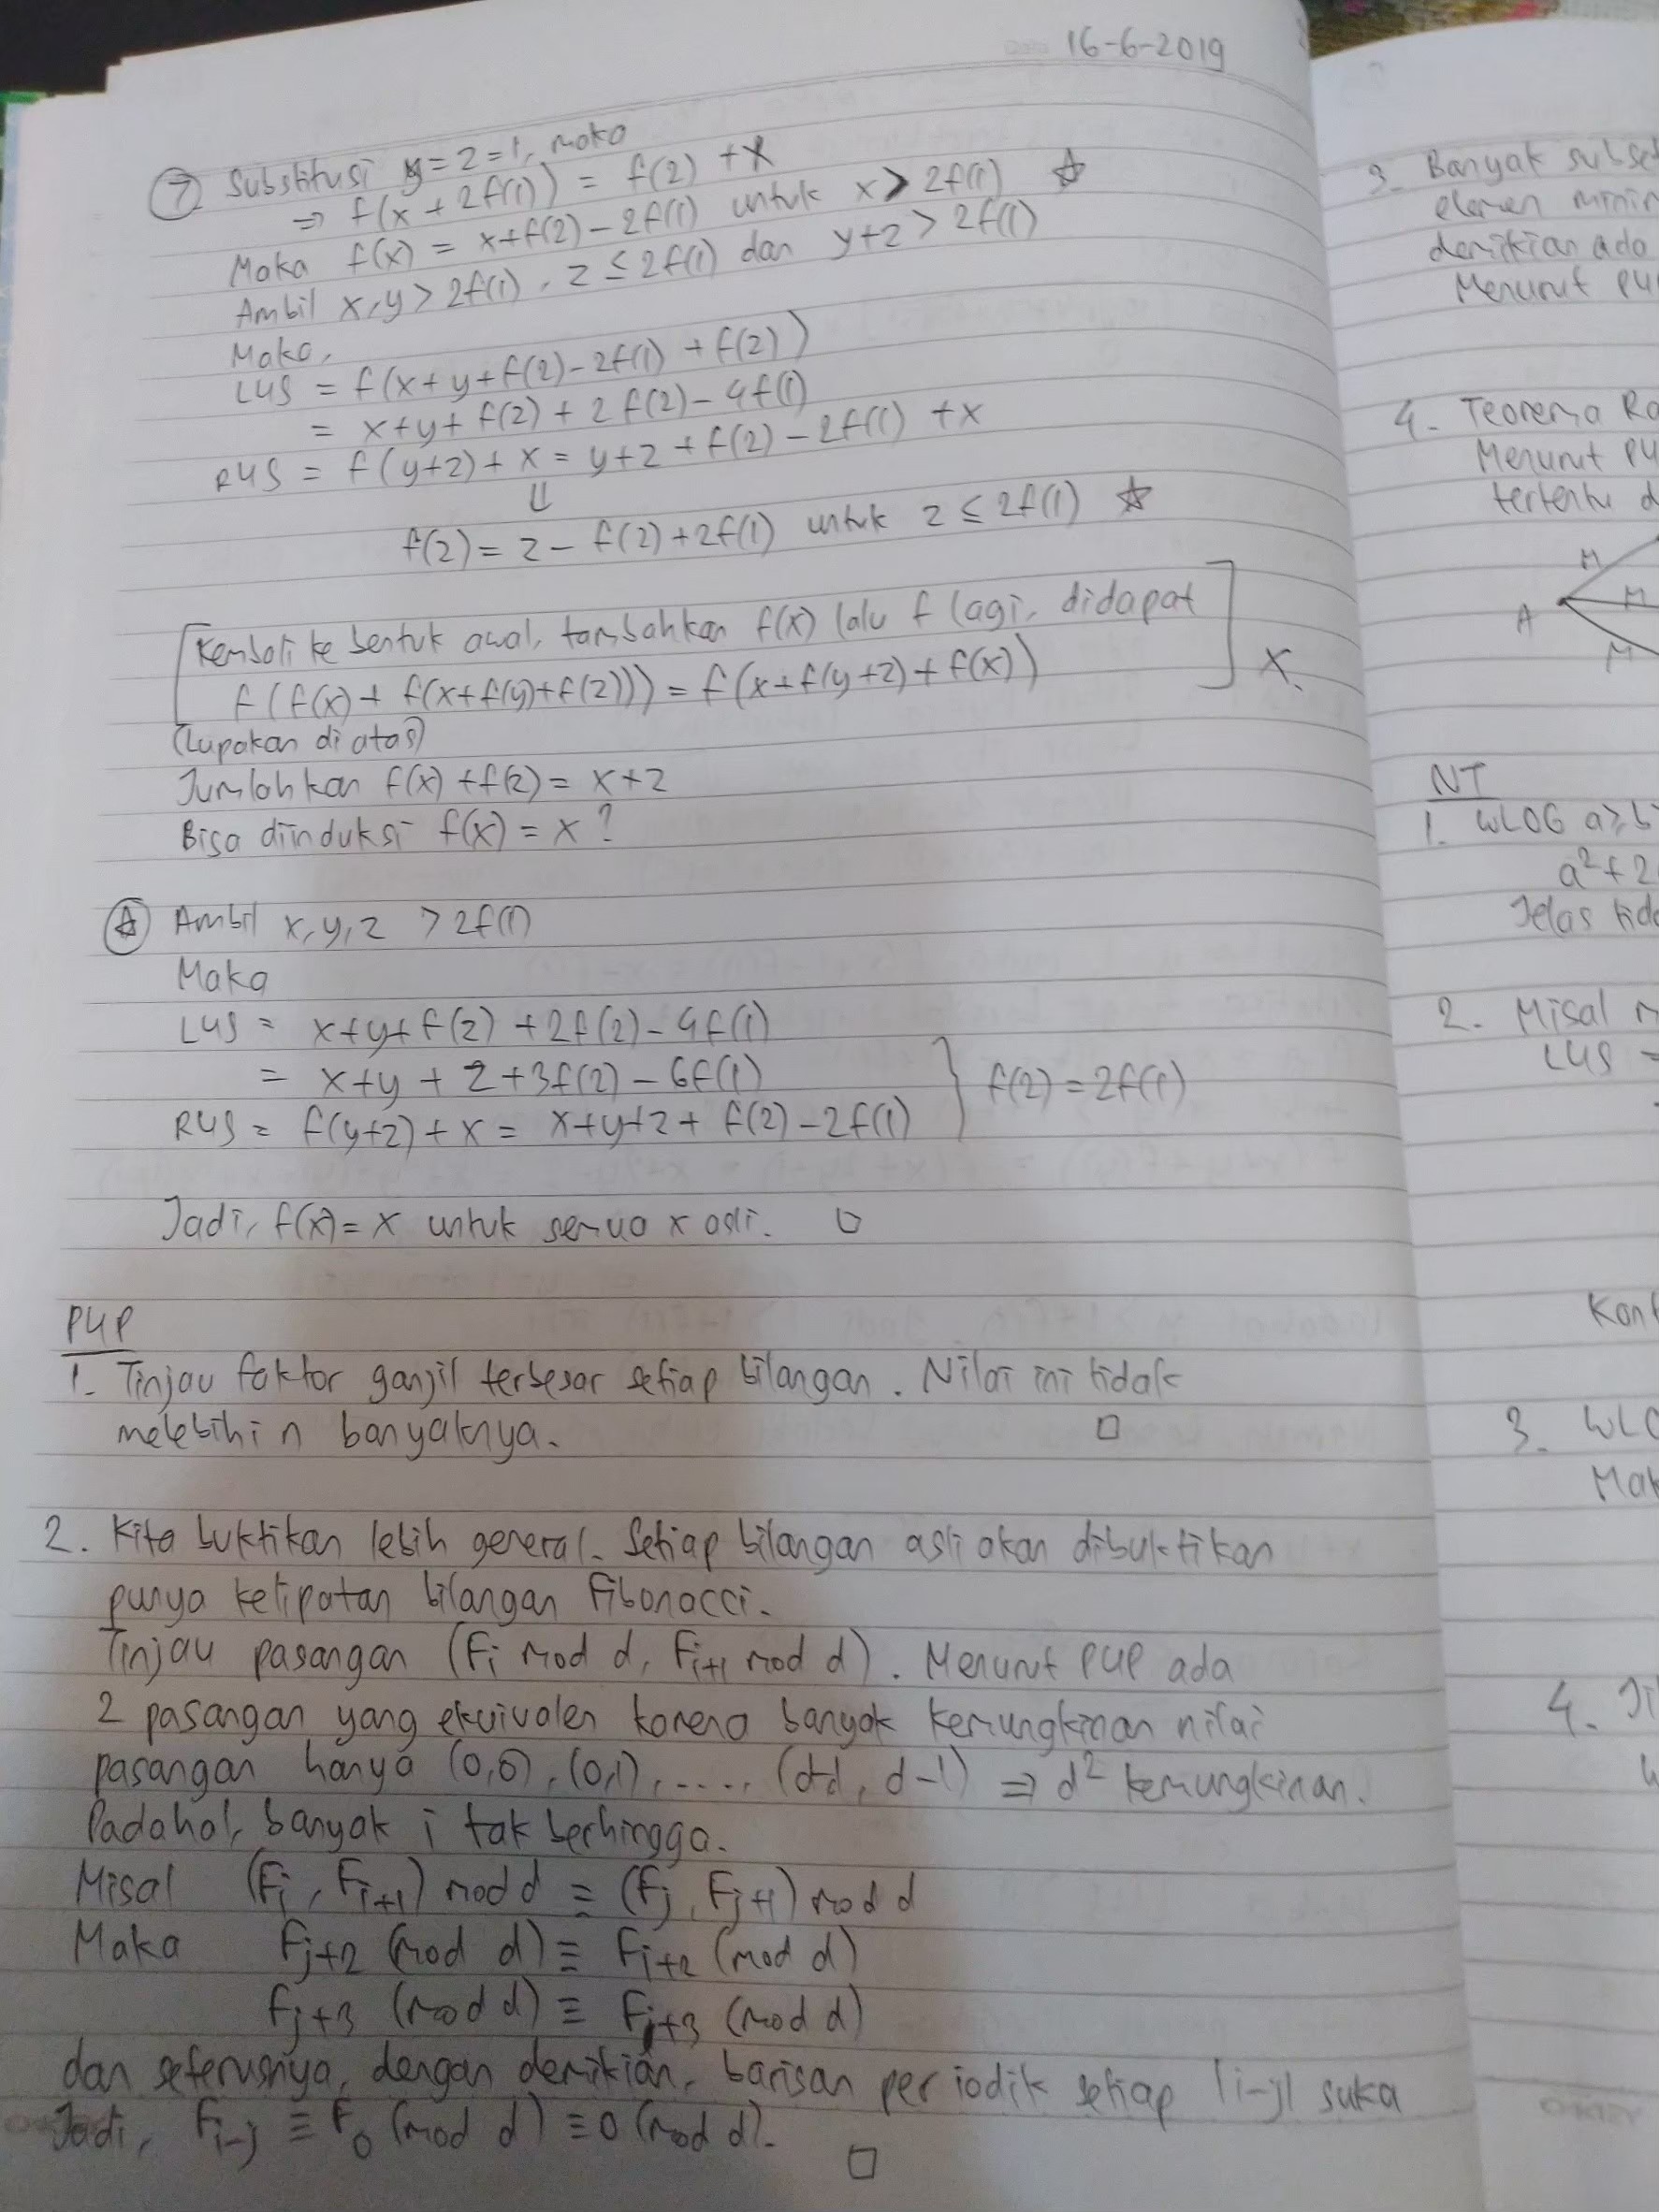 16-6-2019
7 Substitusi y=z=1, maka
⇒ f(x + 2f(1)) = f(2) + x
Maka f(x) = x+f(2)-2f(1) untuk x > 2f(1) ☆
Ambil x,y > 2f(1), z ≤ 2f(1) dan y+z > 2f(1)
Maka,
LHS = f(x+y+f(2)-2f(1)+f(z))
= x+y+f(z)+2f(2)-4f(1)
RHS = f(y+z)+x = y+z+f(2)-2f(1)+x
⇓
f(z) = z-f(2)+2f(1) untuk z ≤ 2f(1) ☆
[Kembali ke bentuk awal, tambahkan f(x) lalu f lagi, didapat
f(f(x)+f(x+f(y)+f(z))) = f(x+f(y+z)+f(x))] X.
(Lupakan di atas)
Jumlahkan f(x)+f(z) = x+z
Bisa diinduksi f(x) = x ?
☆ Ambil x,y,z > 2f(1)
Maka
LHS = x+y+f(z)+2f(2)-4f(1)
= x+y+z+3f(2)-6f(1)
RHS = f(y+z)+x = x+y+z+f(2)-2f(1) } f(2) = 2f(1)
Jadi, f(x) = x untuk semua x asli. □
PHP
1. Tinjau faktor ganjil terbesar setiap bilangan. Nilai ini tidak
melebihi n banyaknya. □
2. Kita buktikan lebih general. Setiap bilangan asli akan dibuktikan
punya kelipatan bilangan Fibonacci.
Tinjau pasangan (Fi mod d, Fi+1 mod d). Menurut PHP ada
2 pasangan yang ekuivalen karena banyak kemungkinan nilai
pasangan hanya (0,0), (0,1), ...., d-1) ⇒ d² kemungkinan.
Padahal, banyak i tak berhingga.
Misal (Fi, Fi+1) mod d ≡ (Fj, Fj+1) mod d
Maka Fj+2 (mod d) ≡ Fi+2 (mod d)
Fj+3 (mod d) ≡ (mod d)
dan seterusnya, dengan demikian, barisan periodik setiap |i-j| suka
Jadi, Fi-j ≡ F0 (mod d) ≡ 0 (mod d). □
3. Banyak
elemen
demikian ada
Menurut
4. Teorema
Menurut
tertentu
M
A
M
M
NT
1. WLOG a≥b
a²+2
Jelas
2. Misal
LHS =
3.
4.